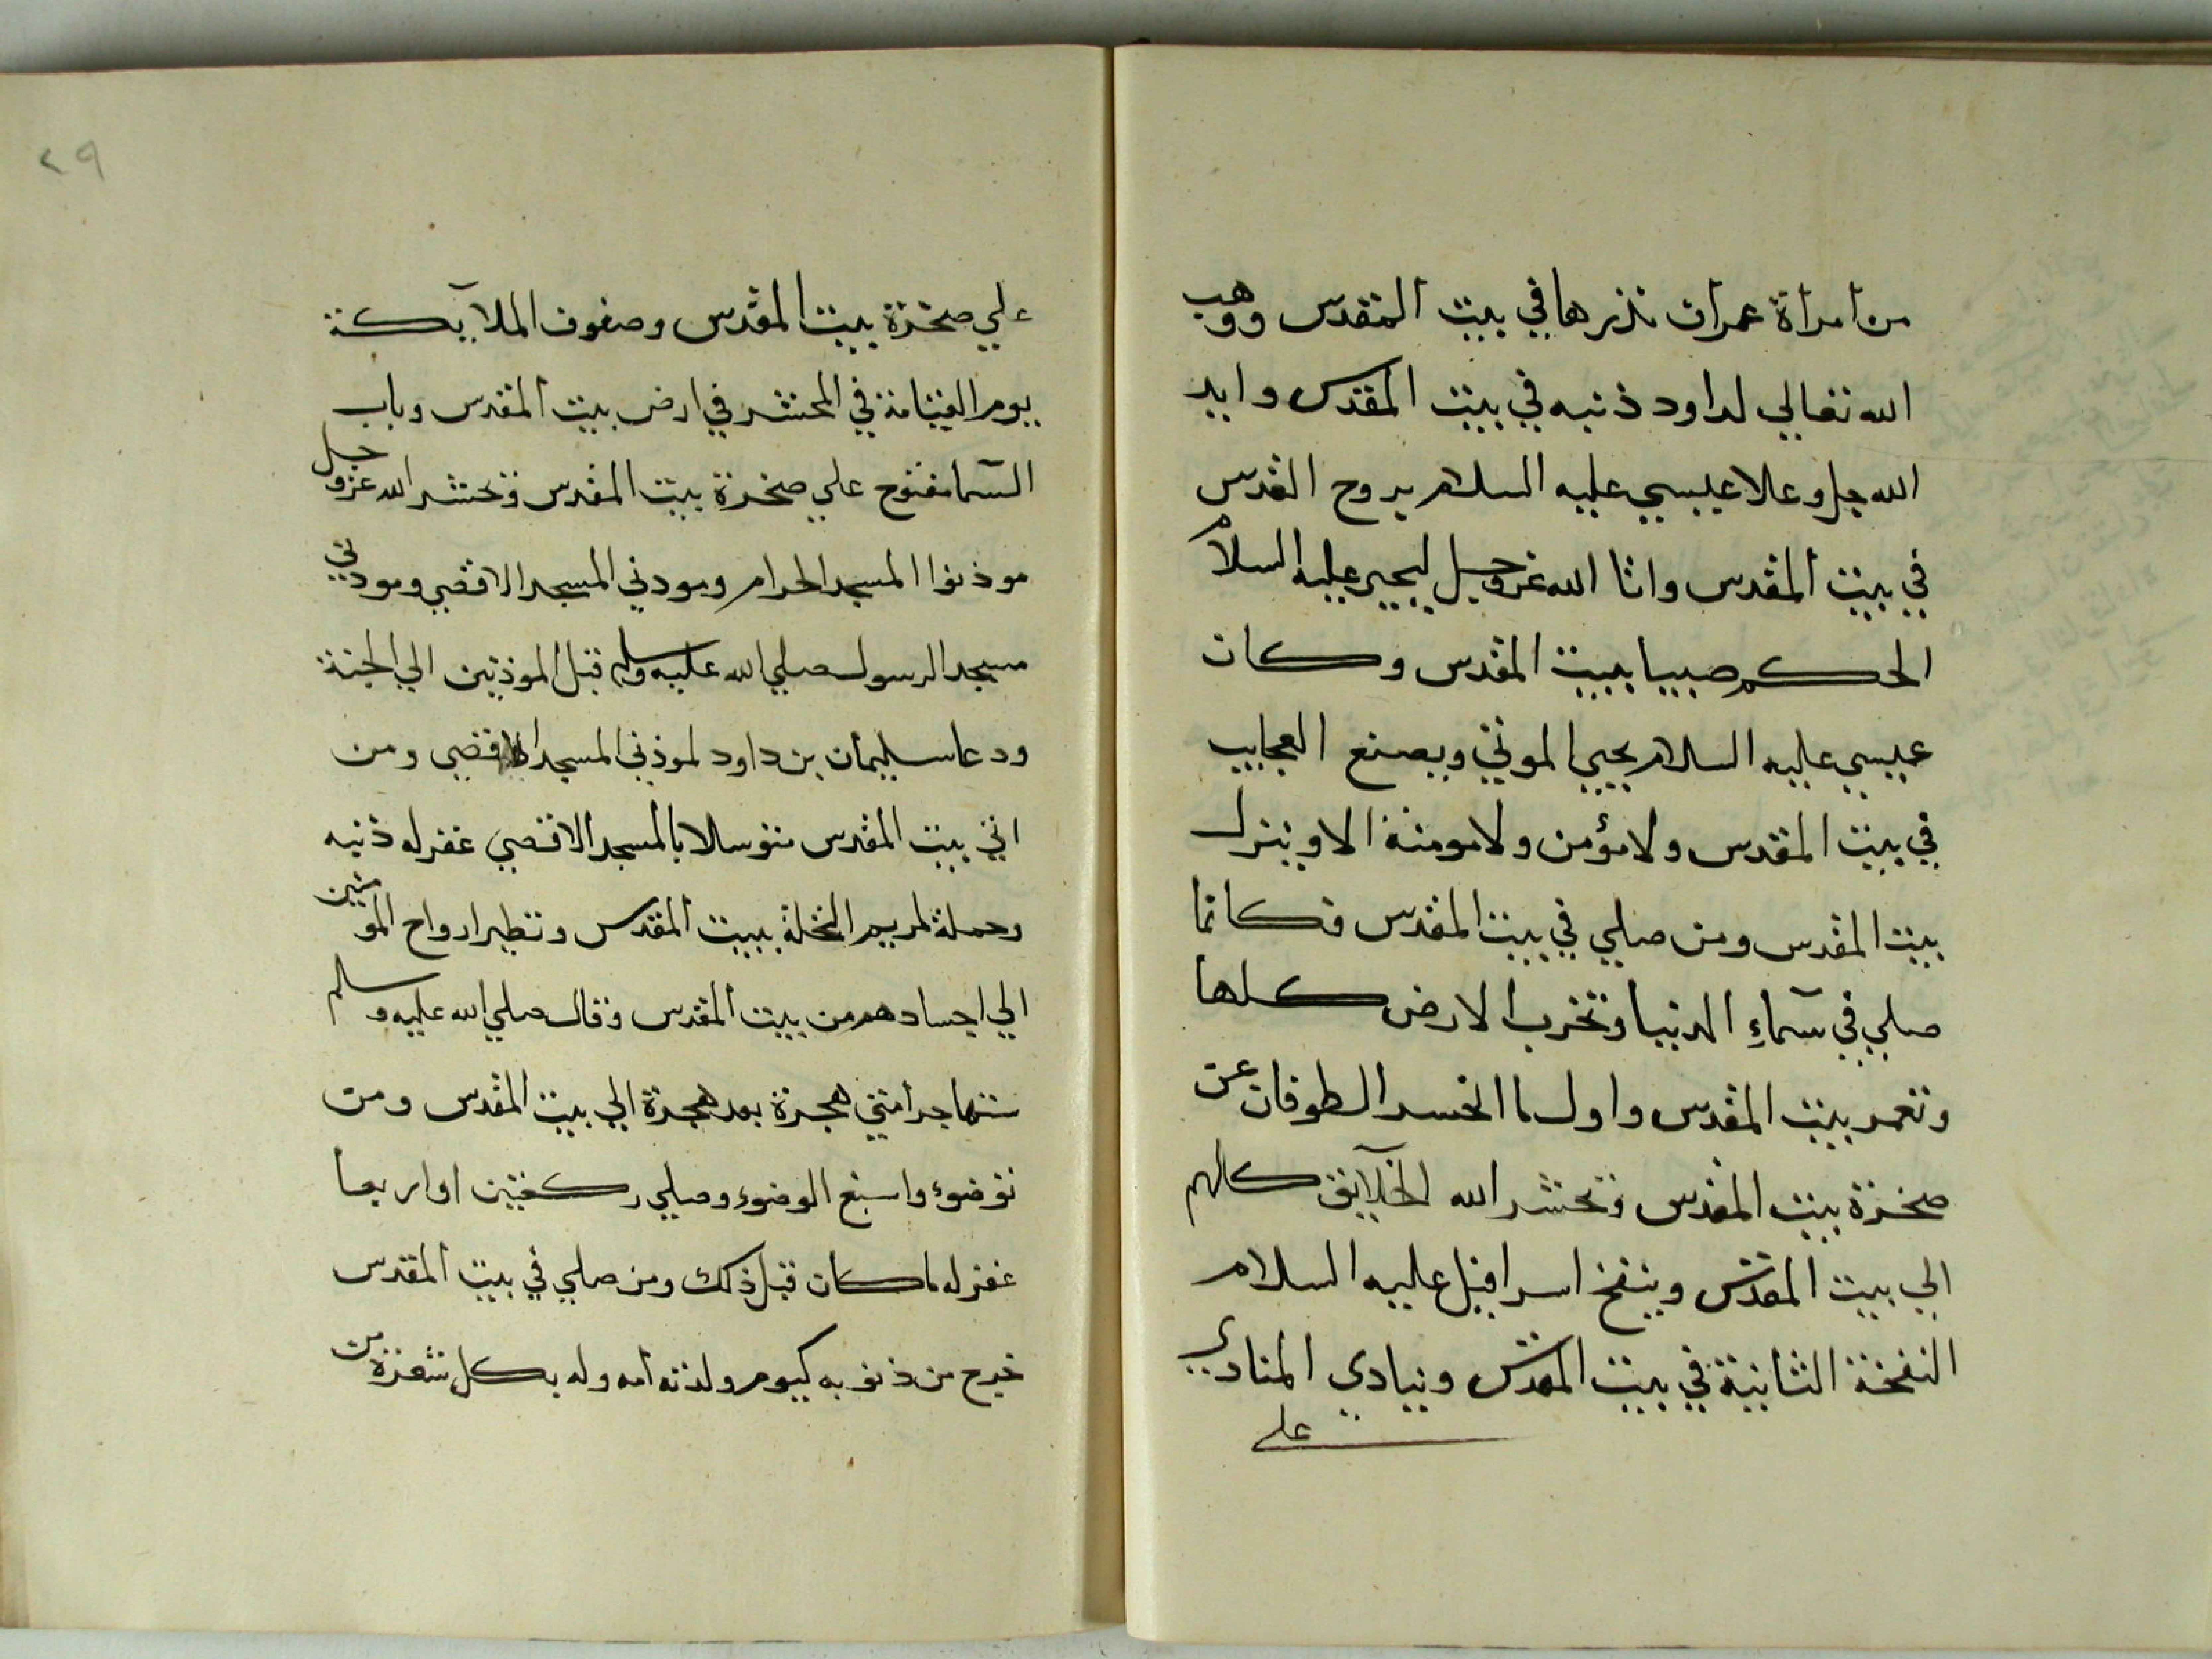 من امرأة عمران نذرها في بيت المقدس ووهب
الله تعالي لداود ذنبه في بيت المقدس وايد
الله جل وعلا عيسي عليه السلام بروح القدس
في بيت المقدس واتا الله عز وجل ليحيي عليه السلام
الحكم صبيا ببيت المقدس وكان
عيسي عليه السلام يحيي الموتي ويصنع العجايب
في بيت المقدس ولا مؤمن ولا مومنة الا وينزل
بيت المقدس ومن صلي في بيت المقدس فكانما
صلي في سمآءِ الدنيا وتخرب الارض كلها
وتعمر بيت المقدس واول ما انحسر الطوفان عن
صخرة بيت المقدس وتحشر الله الخلآيق كلهم
الي بيت المقدس وينفخ اسرافيل عليه السلام
النفخة الثانية في بيت المقدس وينادي المنادي
علي
٢٩
علي صخرة بيت المقدس وصفوف الملآيكة
يوم القيامة في المحشر في ارض بيت المقدس وباب
السما مفتوح علي صخرة بيت المقدس وتحشر الله عز وجل
موذنوا المسجد الحرام وموذني المسجد الاقصي وموذني
مسجد الرسول صلي الله عليه وسلم قبل الموذنين الي الجنة
ودعا سليمان بن داود لموذني المسجد الاقصي ومن
اتي بيت المقدس متوسلا بالمسجد الاقصي غفر له ذنبه
وحملة لمريم النخلة ببيت المقدس وتطير ارواح المومنين
الي اجسادهم من بيت المقدس وقال صلي الله عليه وسلم
ستهاجر امتي هجرة بعد هجرة الي بيت المقدس ومن
توضوء واسبغ الوضوء وصلي ركعتين او اربعا
غفر له ما كان قبل ذلك ومن صلي في بيت المقدس
خرج من ذنوبه كيوم ولدته امه وله بكل شعرة من